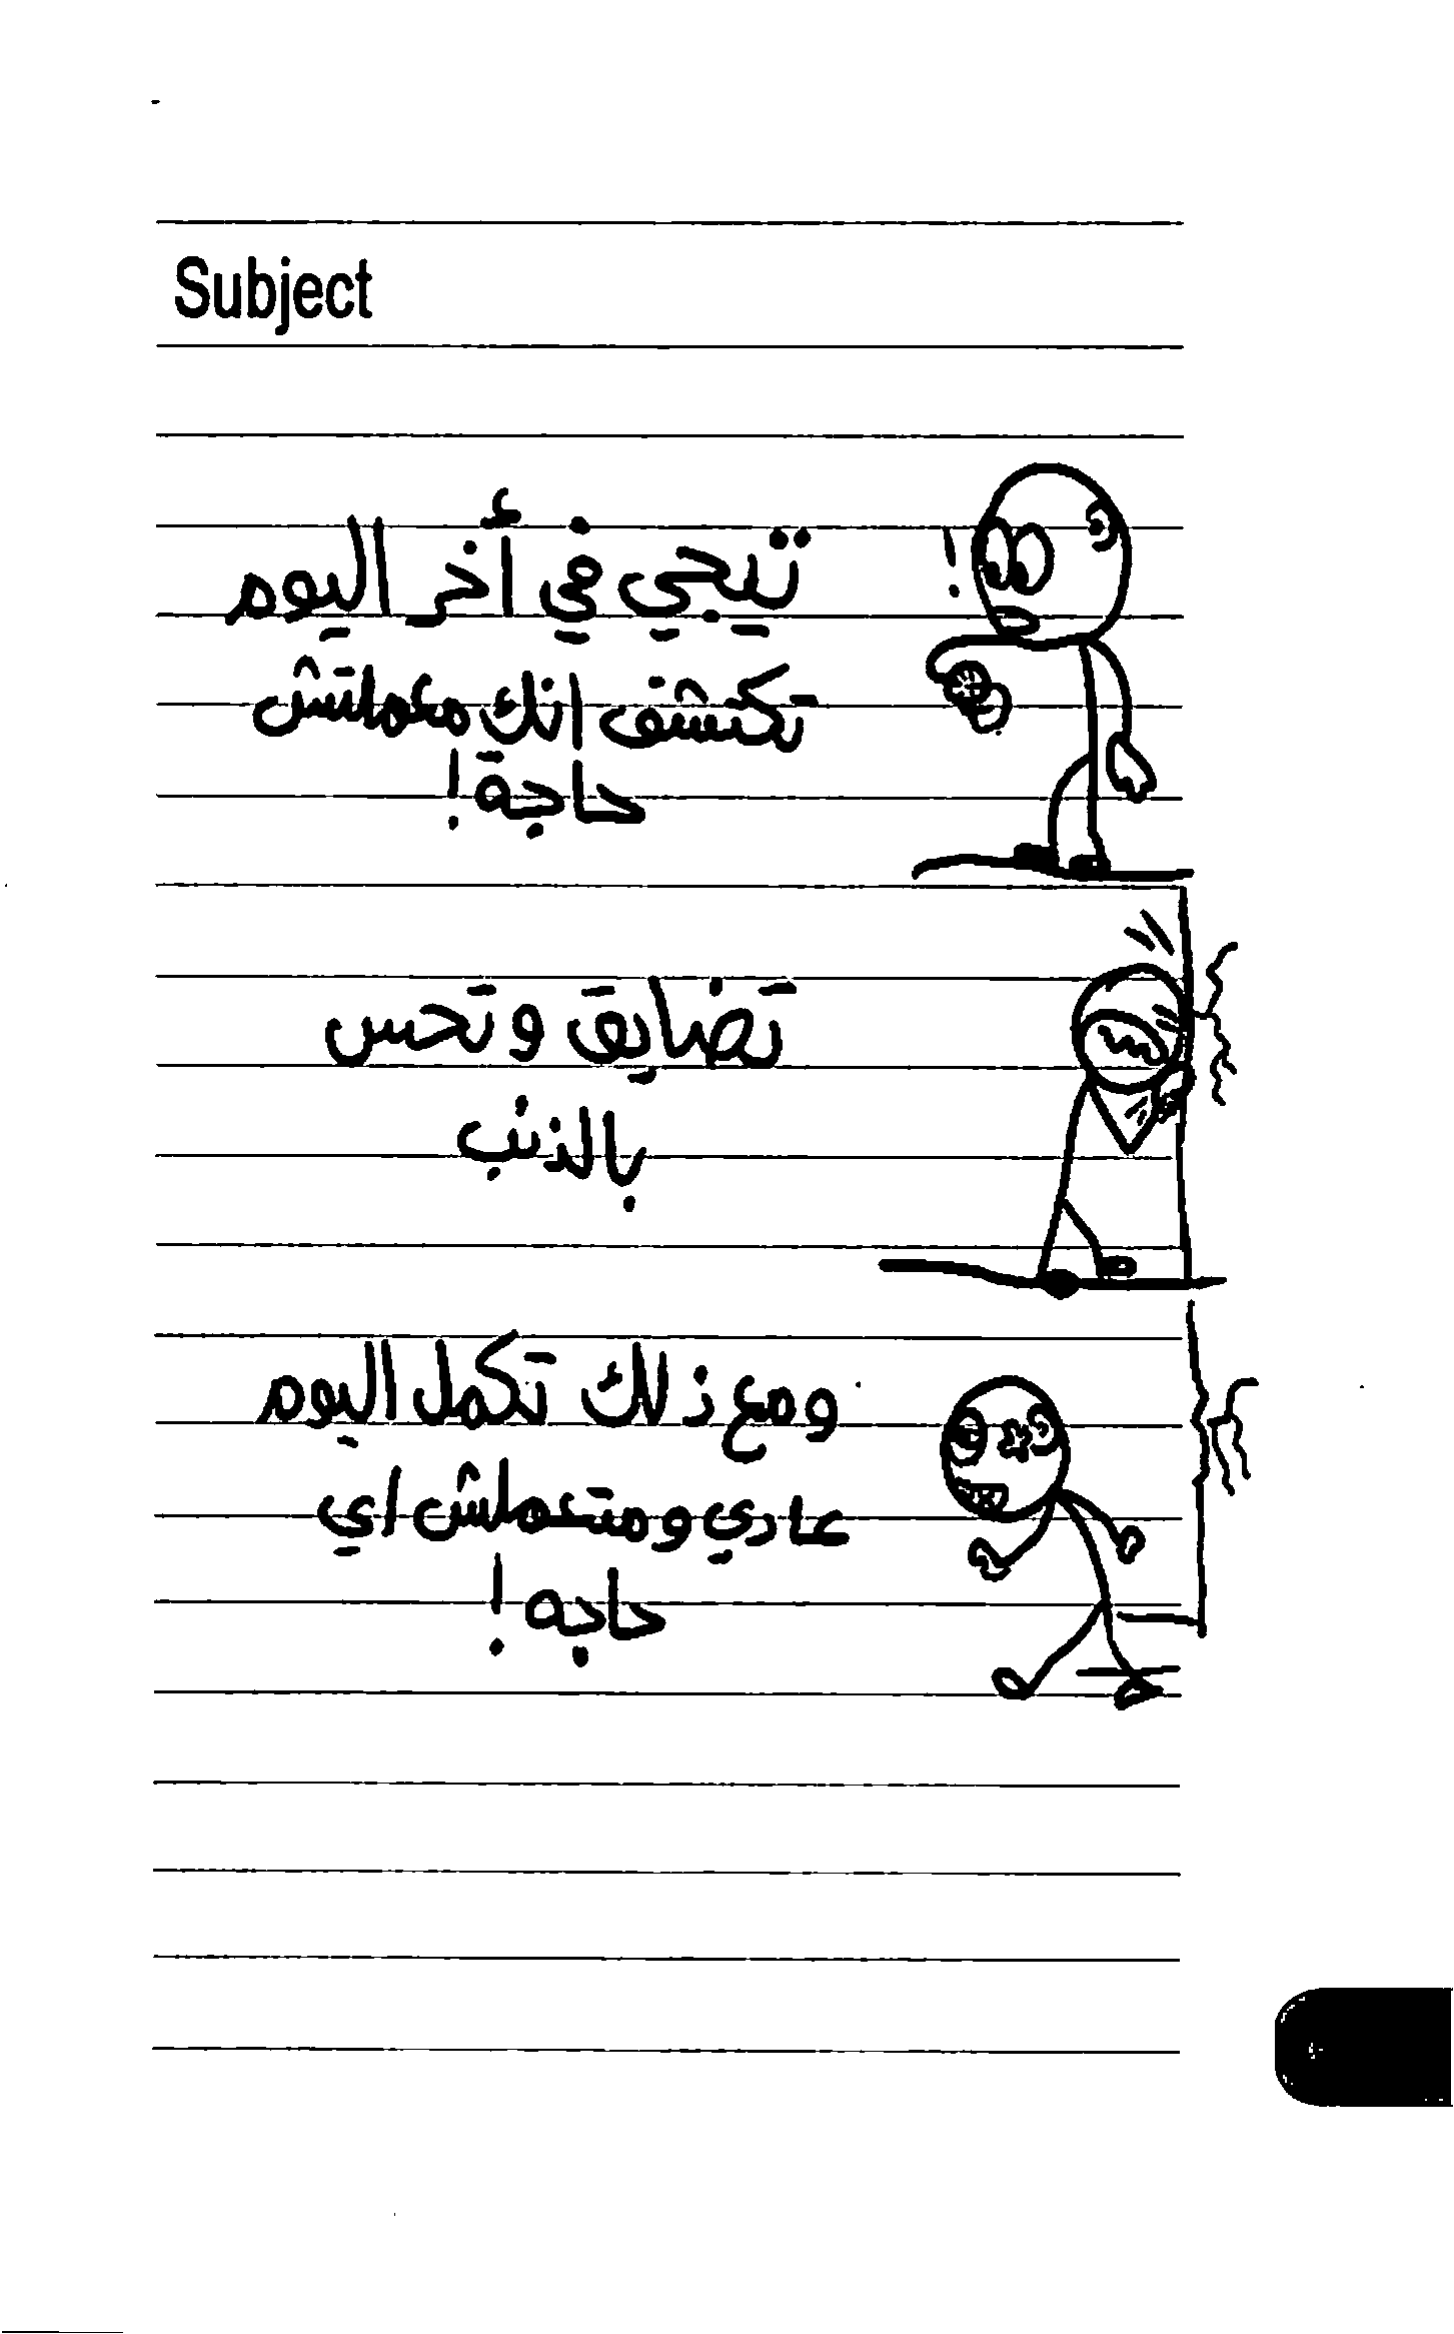 Subject
تيجي في أخر اليوم
تكتشف انك معملتش
حاجة!
تضايق وتحس
بالذنب
ومع ذلك تكمل اليوم
عادي ومتعملش اي
حاجه!